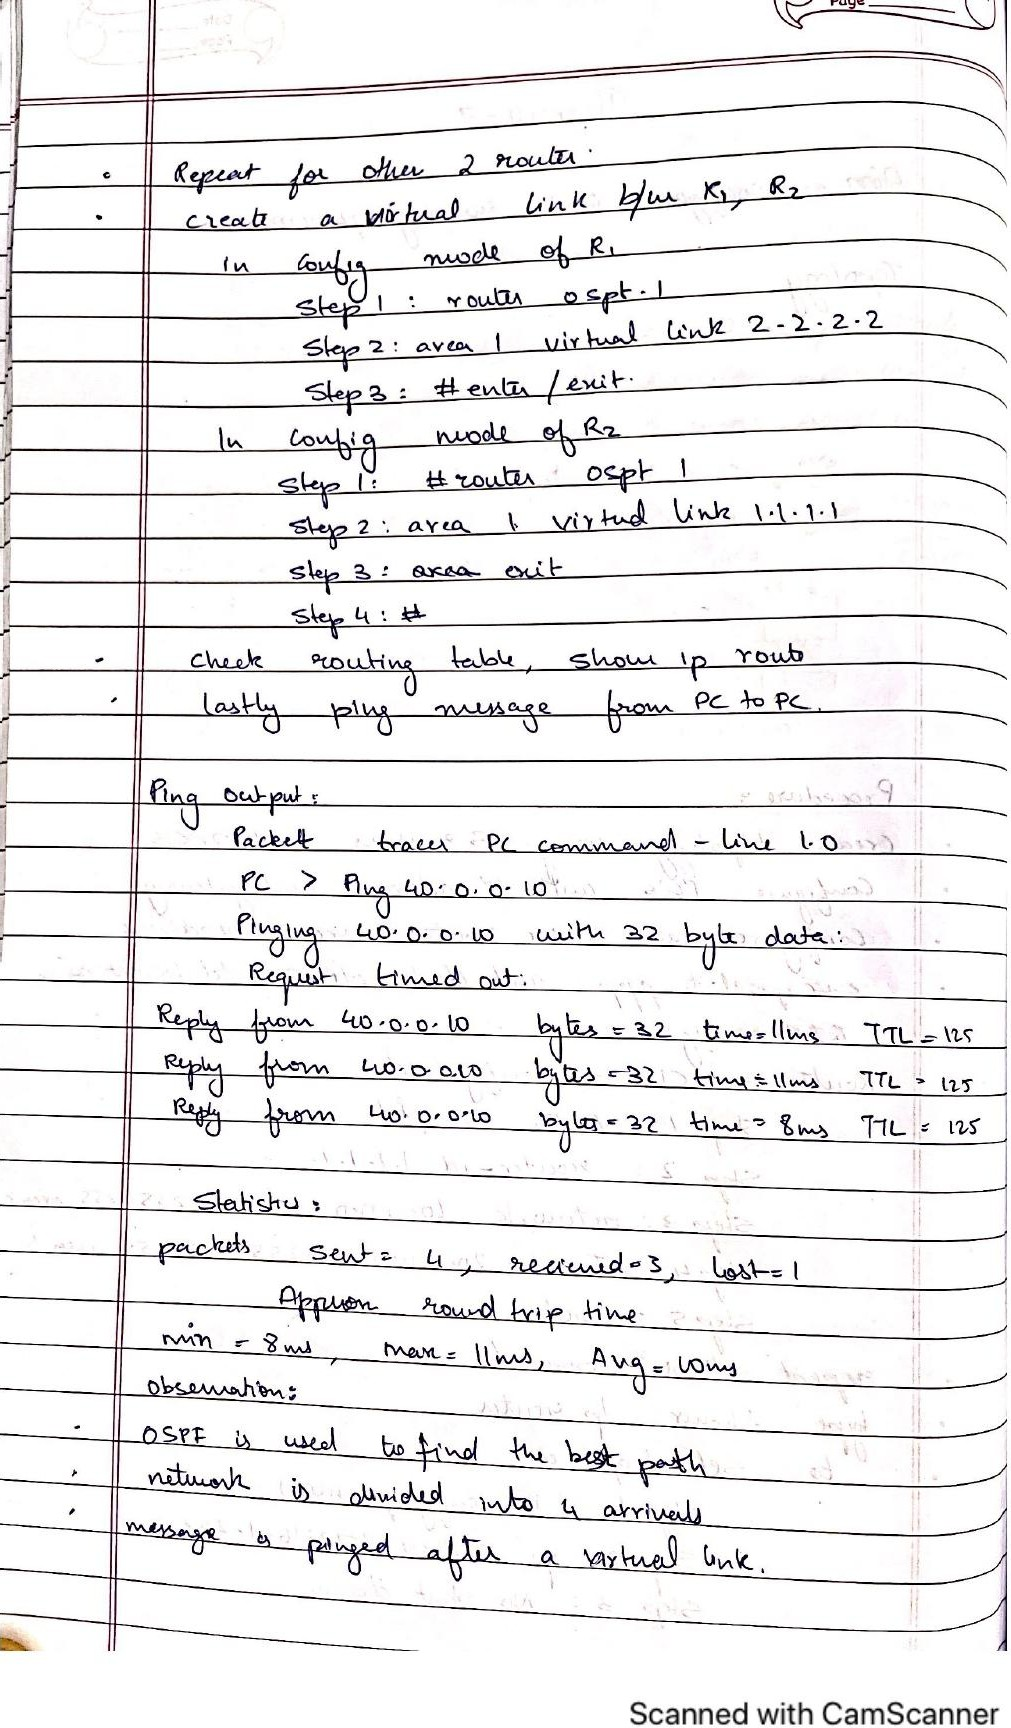 Page
• Repeat for other 2 router.
• create a virtual link b/w R1, R2
in config mode of R1
Step 1 : router ospt. 1
Step 2 : area 1 virtual link 2.2.2.2
Step 3 : # enter / exit.
In config mode of R2
Step 1: # router ospt 1
Step 2 : area 1. virtual link 1.1.1.1
Step 3 : area exit
Step 4 : #
- check routing table, show ip route
. lastly ping message from PC to PC.
Ping output :
Packett tracer PC command - line 1.0
PC > Ping 40.0.0.10
Pinging 40.0.0.10 with 32 byte data :
Request timed out.
Reply from 40.0.0.10 bytes = 32 time=11ms TTL = 125
Reply from 40.0.0.10 bytes = 32 time = 11ms TTL = 125
Reply from 40.0.0.10 bytes = 32 time = 8ms TTL = 125
Statistics :
packets sent = 4, recieved = 3, lost = 1
Approx round trip time
min = 8 ms, max = 11ms, Avg = 10ms
observation:
. OSPF is used to find the best path
. network is divided into 4 arrivals
. message is pinged after a virtual link.
Scanned with CamScanner